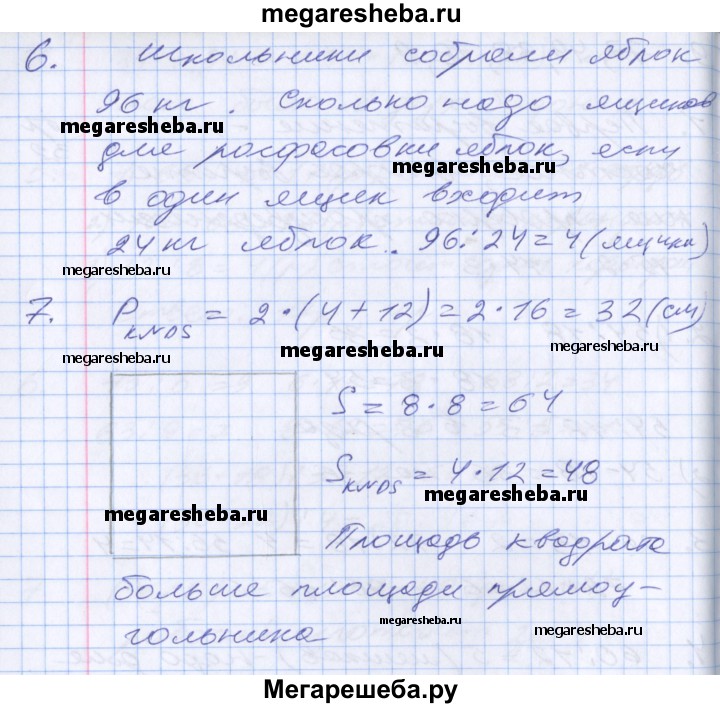 megaresheba.ru
6. Школьники собрали яблок
96 кг. Сколько надо ящиков
megaresheba.ru
для расфасовки яблок, если
megaresheba.ru
в один ящик входит
24 кг яблок. 96:24=4(ящика)
megaresheba.ru
megaresheba.ru
7. P KNDS = 2·(4+12)=2·16=32(см)
megaresheba.ru
megaresheba.ru
S=8·8=64
S KNDS =4·12=48
megaresheba.ru
megaresheba.ru
Площадь квадрата
больше площади прямоу-
megaresheba.ru
megaresheba.ru
гольника
Мегарешеба.ру